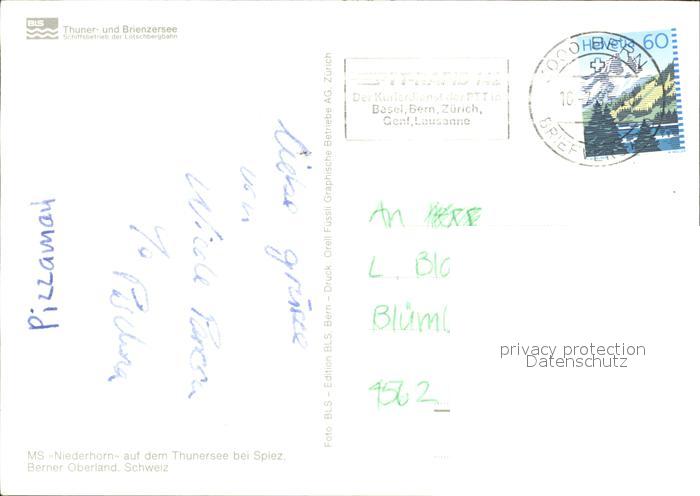 BLS
Thuner- und Brienzersee
Schiffsbetrieb der Lötschbergbahn
Liebe grüsse
von
Nicole
Pizzaman
MS «Niederhorn» auf dem Thunersee bei Spiez.
Berner Oberland. Schweiz
Foto BLS – Edition BLS, Bern – Druck Orell Füssli Graphische Betriebe AG, Zürich
Der Kurierdienst der PTT in
Basel, Bern, Zürich,
Genf, Lausanne
3000 BERN
16
BRIEFVER
Helvetia 60
An
L. Blo
Blüml
4562
privacy protection
Datenschutz